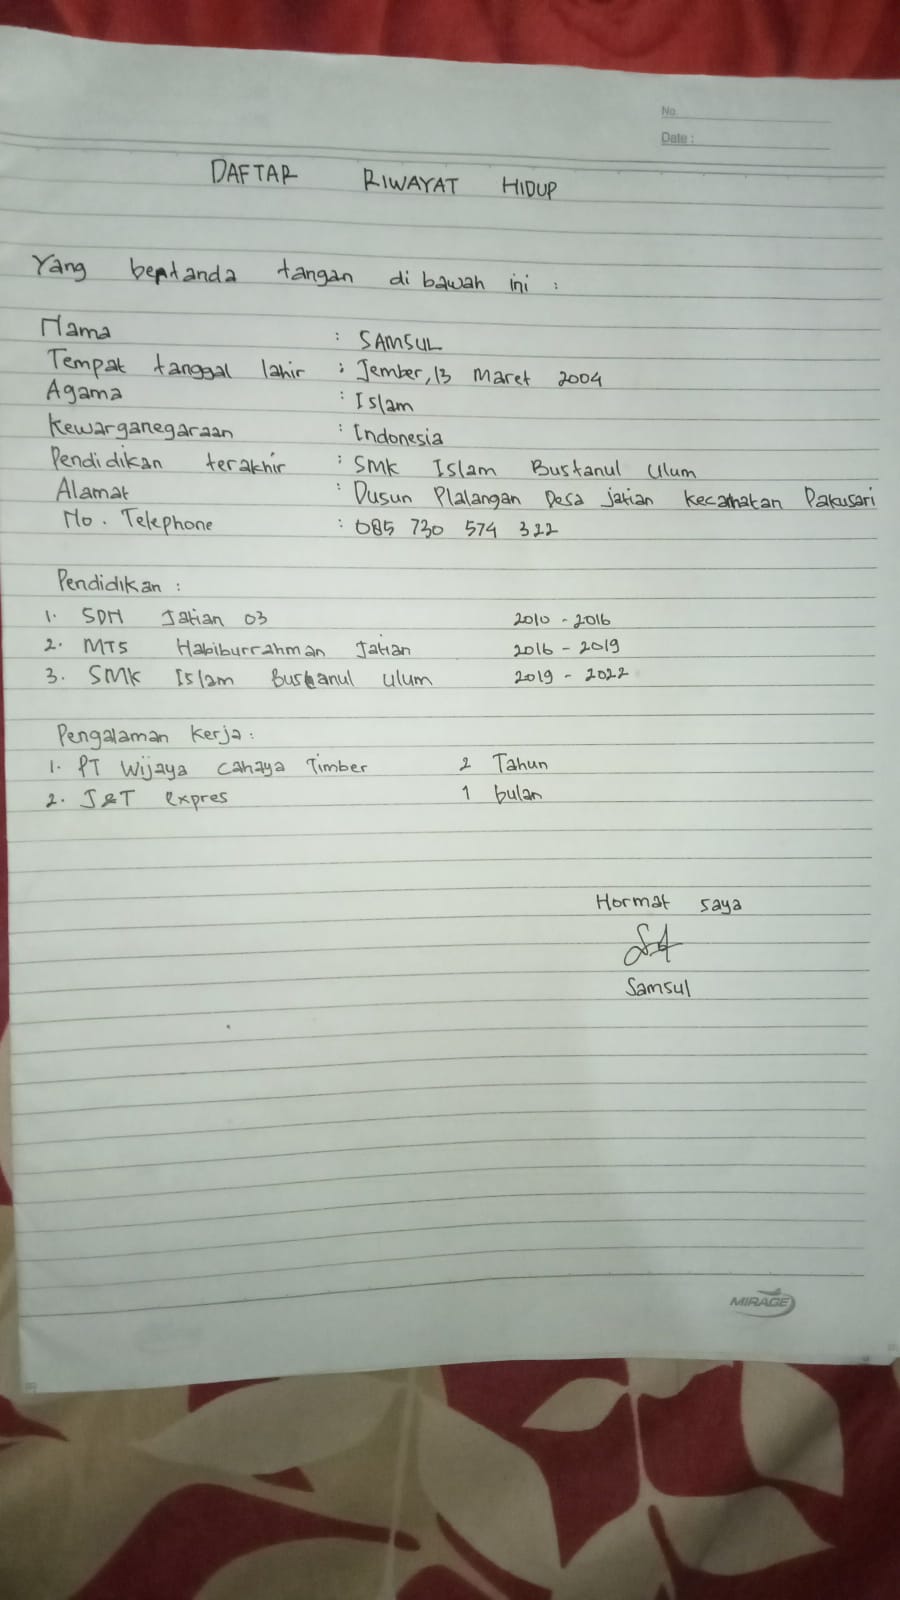 No.
Date :
DAFTAR RIWAYAT HIDUP
Yang bertanda tangan di bawah ini :
Nama : SAMSUL
Tempat tanggal lahir : Jember, 13 Maret 2004
Agama : Islam
Kewarganegaraan : Indonesia
Pendidikan terakhir : SMK Islam Bustanul Ulum
Alamat : Dusun Plalangan Desa jatian Kecamatan Pakusari
No. Telephone : 085 730 574 322
Pendidikan :
1. SDN Jatian 03 2010 - 2016
2. MTS Habiburrahman Jatian 2016 - 2019
3. SMK Islam Bustanul Ulum 2019 - 2022
Pengalaman Kerja :
1. PT Wijaya Cahaya Timber 2 Tahun
2. J&T expres 1 bulan
Hormat saya
Samsul
MIRAGE